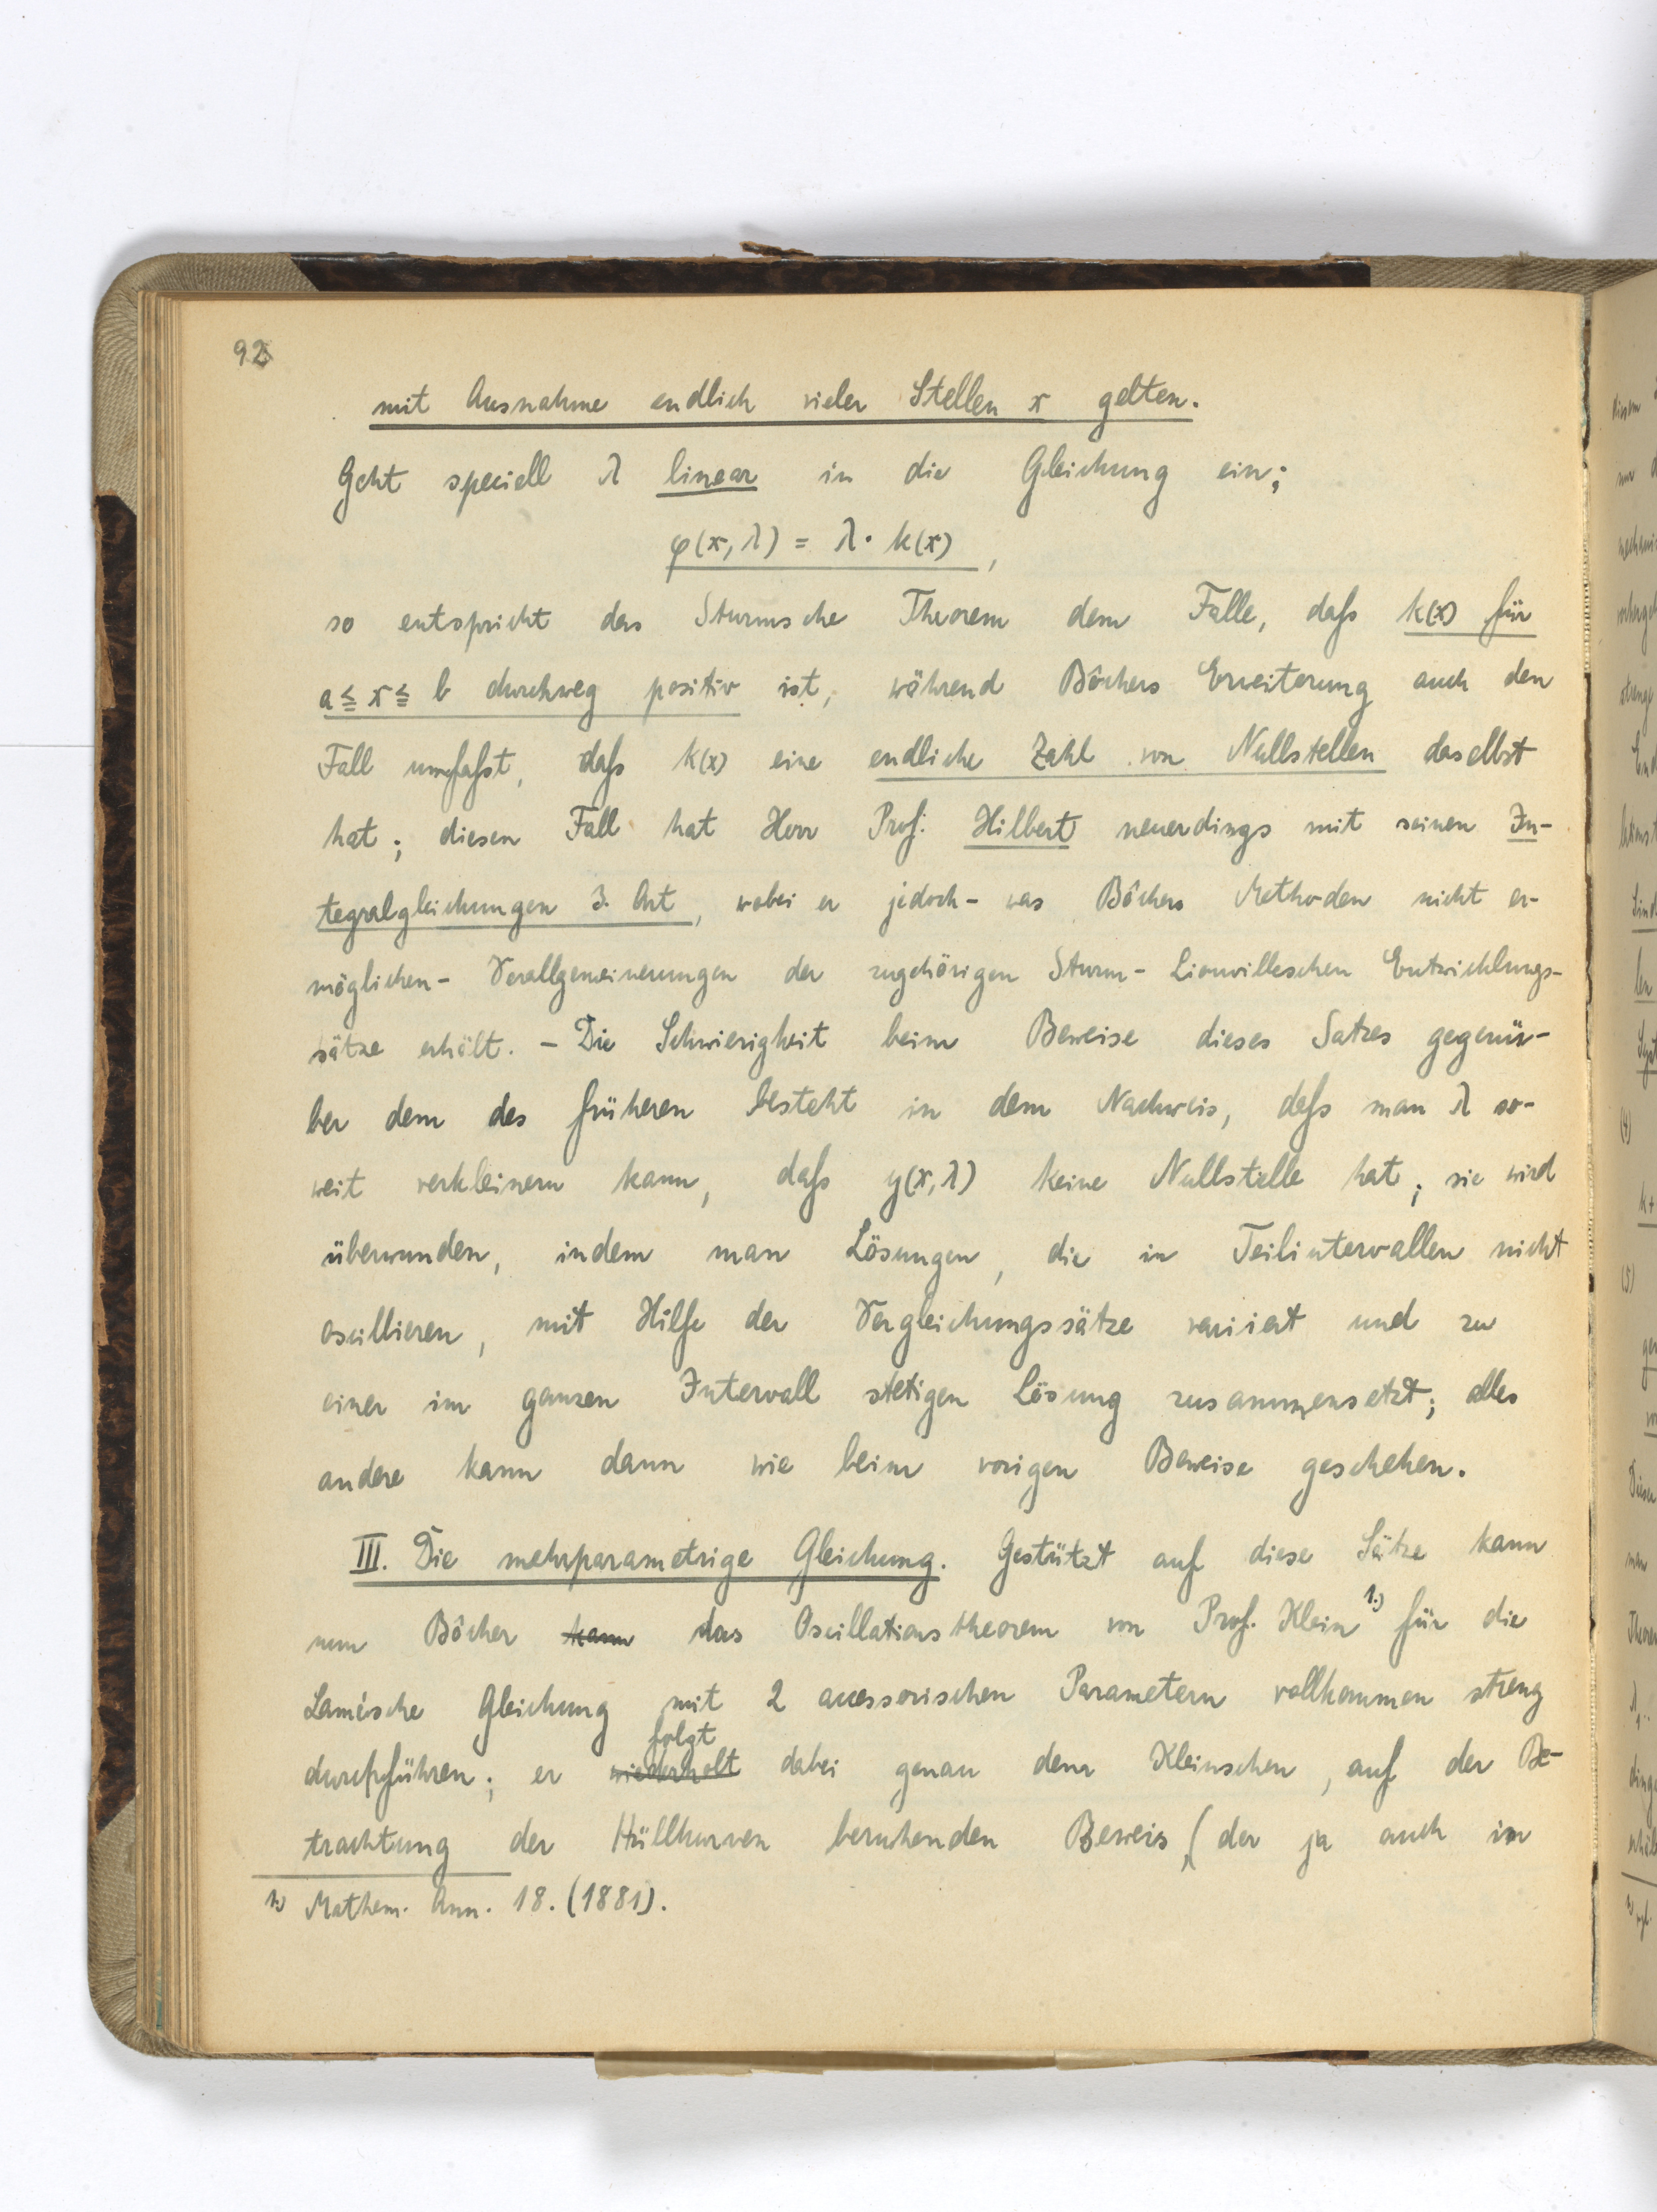 92
mit Ausnahme endlich vieler Stellen x gelten.
Geht speciell λ linear in die Gleichung ein;
φ(x, λ) = λ · k(x),
so entspricht das Sturmsche Theorem dem Falle, dafs k(x) für
a ≦ x ≦ b durchweg positiv ist, während Bôchers Erweiterung auch den
Fall umfafst, dafs k(x) eine endliche Zahl von Nullstellen daselbst
hat; diesen Fall hat Herr Prof. Hilbert neuerdings mit seinen In-
tegralgleichungen 3. Art, wobei er jedoch - was Bôchers Methoden nicht er-
möglichen - Verallgemeinerungen der zugehörigen Sturm-Liouvilleschen Entwicklungs-
sätze erhält. - Die Schwierigkeit beim Beweise dieses Satzes gegenü-
ber dem des früheren besteht in dem Nachweis, dafs man λ so-
weit verkleinern kann, dafs y(x, λ) keine Nullstelle hat; sie wird
überwunden, indem man Lösungen, die in Teilintervallen nicht
oscillieren, mit Hilfe der Vergleichungssätze variiert und zu
einer im ganzen Intervall stetigen Lösung zusammensetzt; alles
andere kann dann wie beim vorigen Beweise geschehen.
III. Die mehrparametrige Gleichung. Gestützt auf diese Sätze kann
nun Bôcher kann das Oscillationstheorem von Prof. Klein 1.) für die
Lamésche Gleichung mit 2 accessorischen Parametern vollkommen streng
folgt
durchführen; er wiederholt dabei genau dem Kleinschen, auf der Be-
trachtung der Hüllkurven beruhenden Beweis, (der ja auch in
1.) Mathem. Ann. 18. (1881).